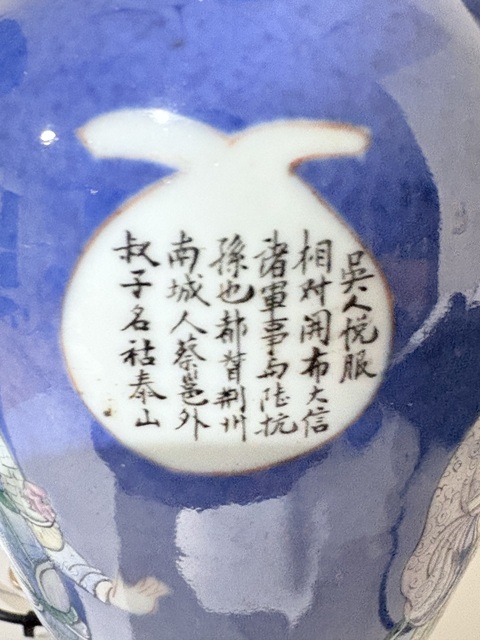 叔子名祜泰山
南城人蔡邕外
孫也都督荆州
諸軍事与陸抗
相对開布大信
吳人悅服